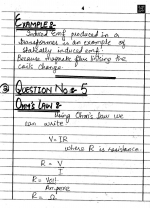 4
EXAMPLE:-
Induced emf produced in a
transformer is an example of
statically induced emf.
Because magnetic flux linking the
coils change.
QUESTION No:- 5
Ohm's LAW:-
Using Ohm's law we
can write
V = IR
where R is resistance
R = V
R = Volt
Ampere
R = Ω